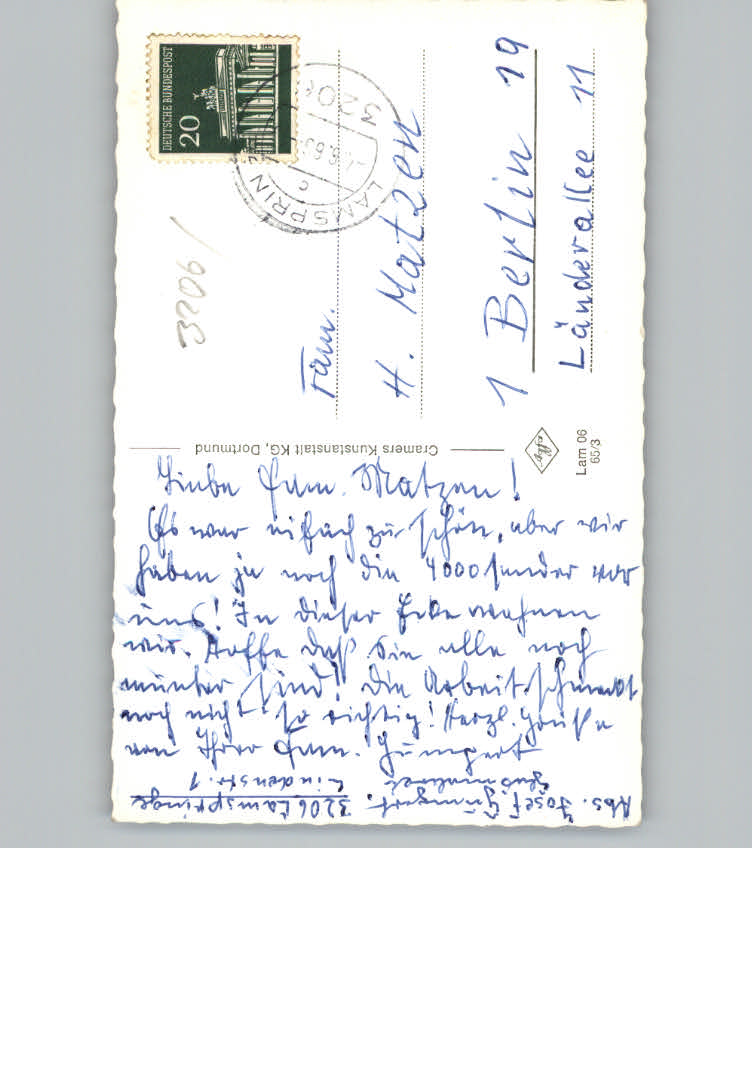 Liebe Fam. Matzen!
Es war einfach zu schön, aber wir
haben ja noch die 4000 sender vor
uns! In dieser Ecke wohnen
wir. Hoffe daß Sie alle noch
munter sind! Die Arbeit schmeckt
noch nicht so richtig! Herzl. Grüße
von Ihrer Fam.
Abs. Josef
3206 Lamspringe
Lindenstr. 1
Cramers Kunstanstalt KG, Dortmund
DEUTSCHE BUNDESPOST
20
3206
LAMSPRIN
c
3206/
Fam.
H. Matzen
1 Berlin 19
Länderallee 11
Lam 06
65/3